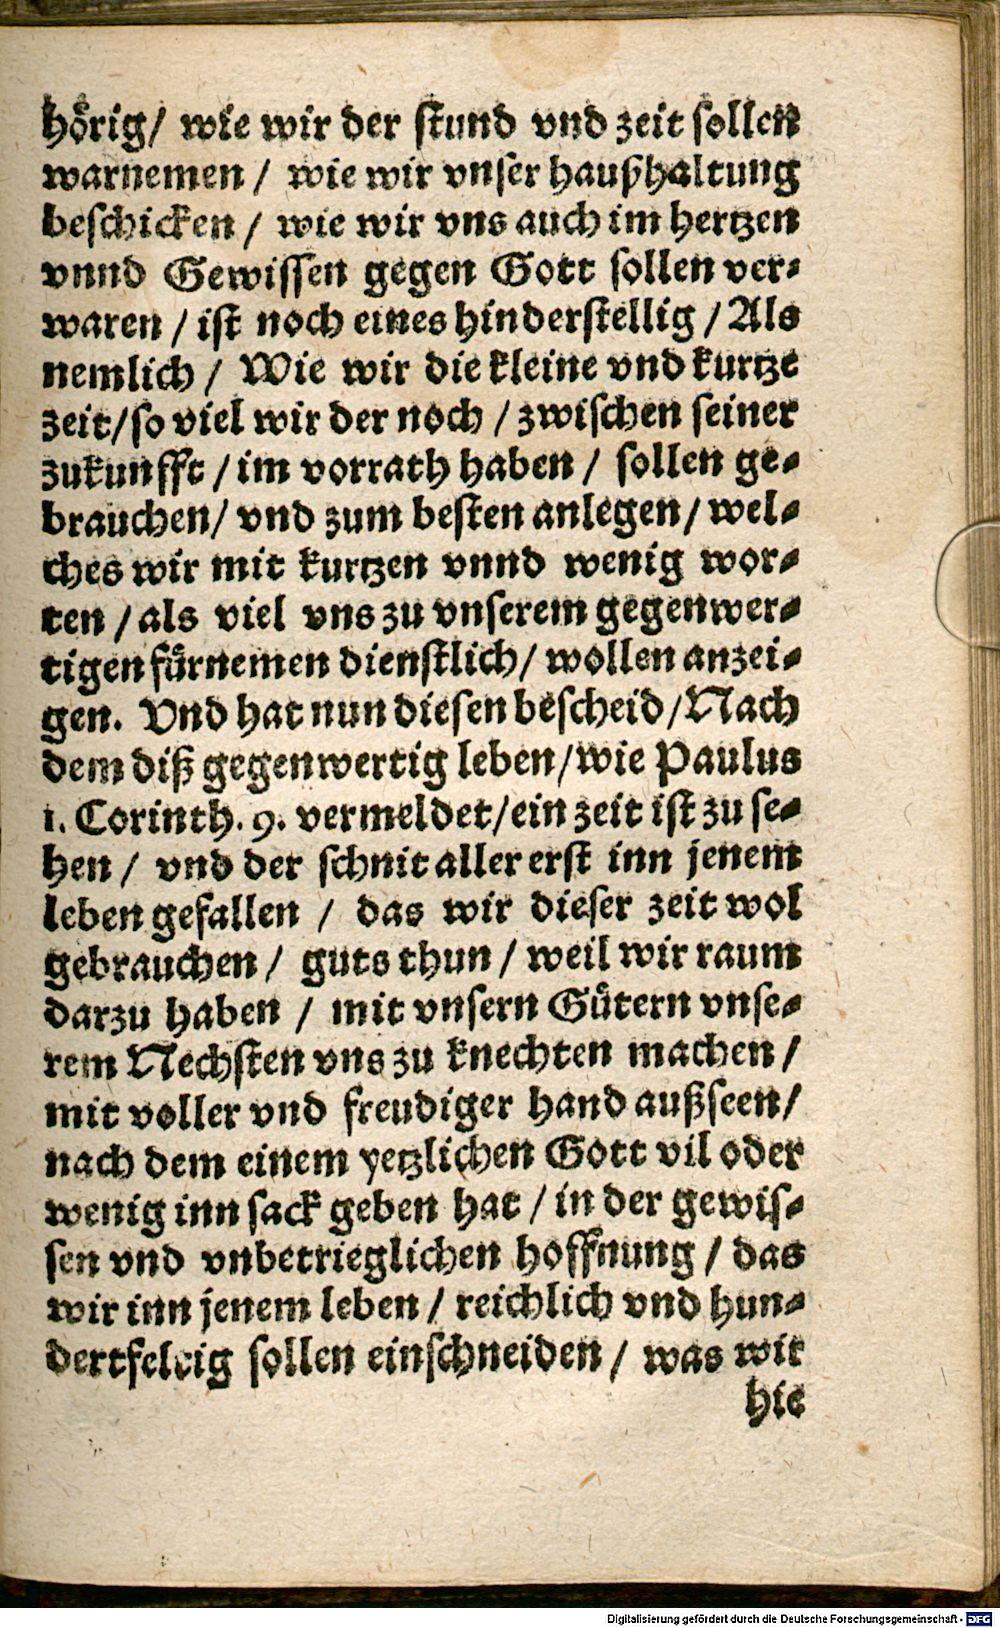 hörig/ wie wir der stund vnd zeit sollen
warnemen / wie wir vnser haußhaltung
beschicken / wie wir vns auch im hertzen
vnnd Gewissen gegen Gott sollen ver-
waren / ist noch eines hinderstellig / Als
nemlich / Wie wir die kleine vnd kurtze
zeit/so viel wir der noch / zwischen seiner
zukunfft / im vorrath haben / sollen ge-
brauchen/ vnd zum besten anlegen/ wel-
ches wir mit kurtzen vnnd wenig wor-
ten / als viel vns zu vnserem gegenwer-
tigen fürnemen dienstlich/ wollen anzei-
gen. Vnd hat nun diesen bescheid/Nach
dem diß gegenwertig leben/wie Paulus
1. Corinth. 9. vermeldet/ein zeit ist zu se-
hen / vnd der schnit aller erst inn jenem
leben gefallen / das wir dieser zeit wol
gebrauchen / guts thun / weil wir raum
darzu haben / mit vnsern Gütern vnse-
rem Nechsten vns zu knechten machen /
mit voller vnd freudiger hand außseen/
nach dem einem yetzlichen Gott vil oder
wenig inn sack geben hat / in der gewis-
sen vnd vnbetrieglichen hoffnung / das
wir inn jenem leben / reichlich vnd hun-
dertfeltig sollen einschneiden / was wir
hie
Digitalisierung gefördert durch die Deutsche Forschungsgemeinschaft - DFG